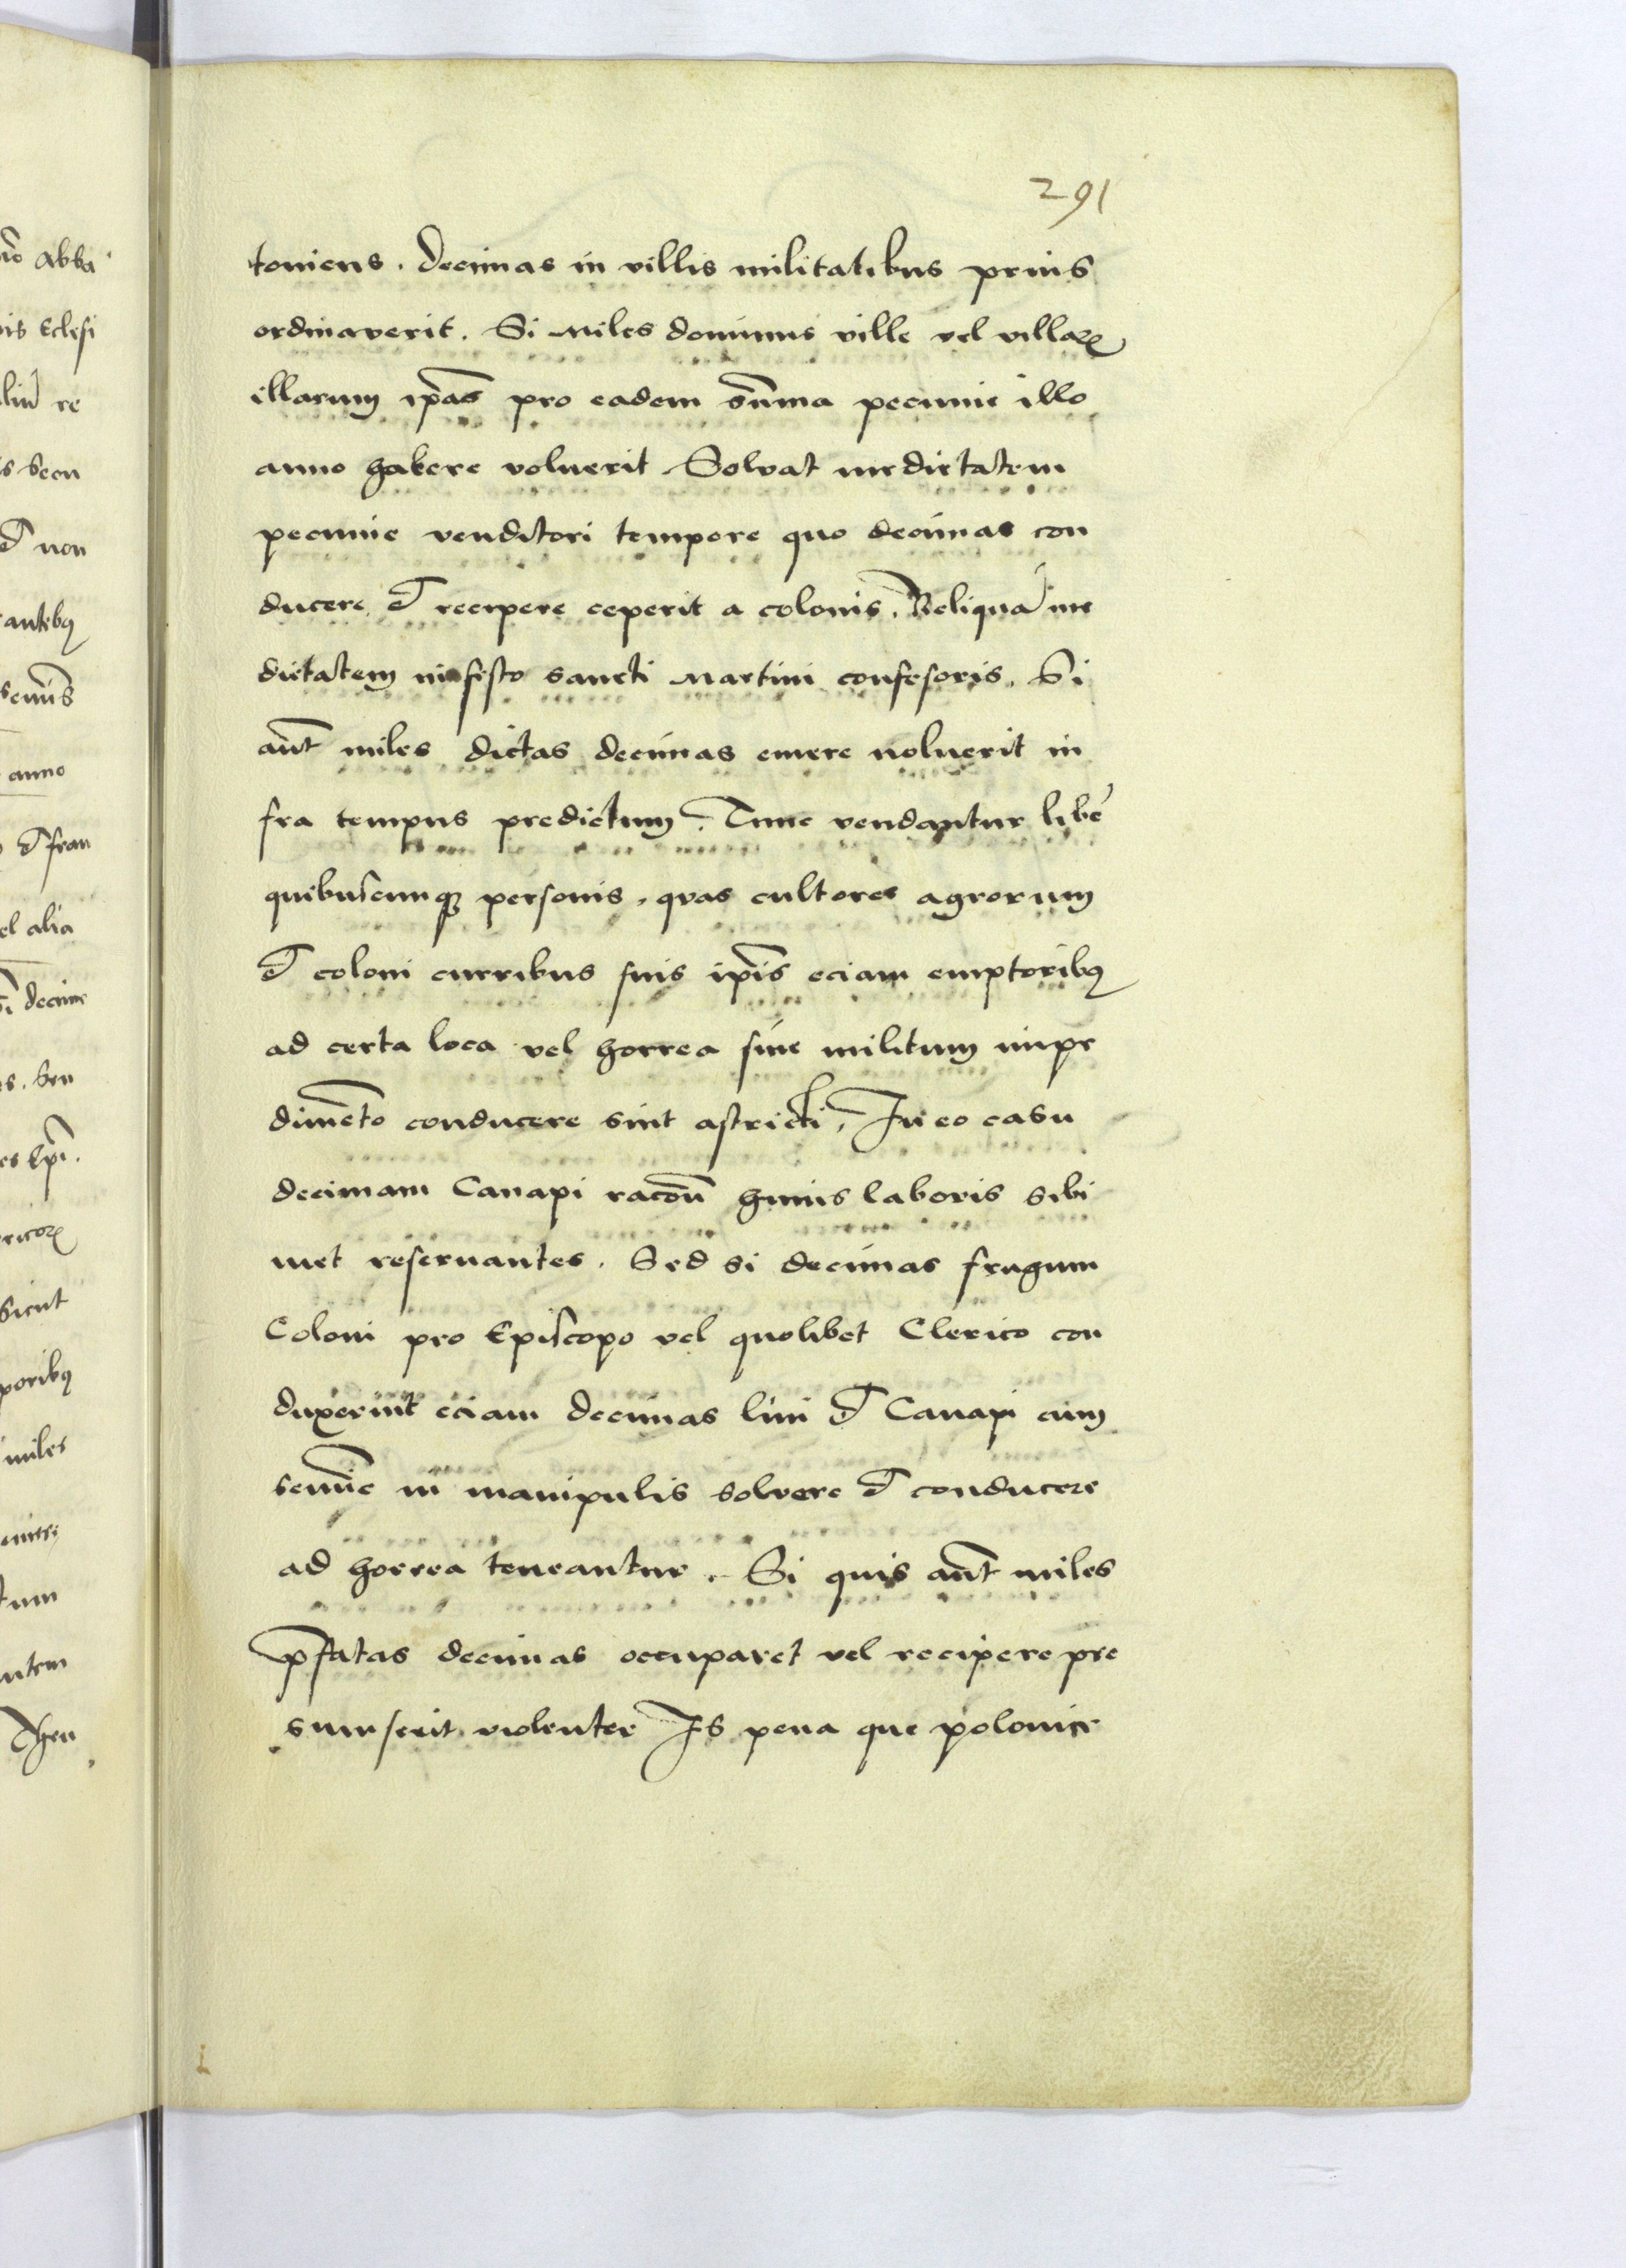 291
toniens. decimas in villis militatibus prius
ordinaverit. Si miles dominus ville vel villaꝝ
illarum ip̃as pro eadem sum̃a pecunie illo
anno habere voluerit Solvat medietatem
pecunie venditori tempore quo decimas con
ducere et recipere ceperit a colonis. Reliquã me
dietatem in festo sancti Martini confesoris. Si
aut̃ miles dictas decimas emere noluerit in
fra tempus predictum. Tunc vendantur libẽ
quibuscunqꝫ personis, qvas cultores agrorum
et coloni curribus suis ip̃is eciam emptoribꝰ
ad certa loca vel horrea sine militum impe
dimẽto conducere sint astricti, In eo casu
decimam Canapi racõn huius laboris sibi
met reservantes. Sed si decimas frugum
Coloni pro Episcopo vel quolibet Clerico con
duxerint eciam decimas lini et Canapi cum
semĩe in manipulis solvere et conducere
ad horrea teneantur. Si quis aut̃ miles
p̃fatas decimas occuparet vel recipere pre
sumserit violenter Is pena que polonice
abba
Eclesi
re
non
anno
et fran
el alia
decime
Ep̃i.
sicut
miles